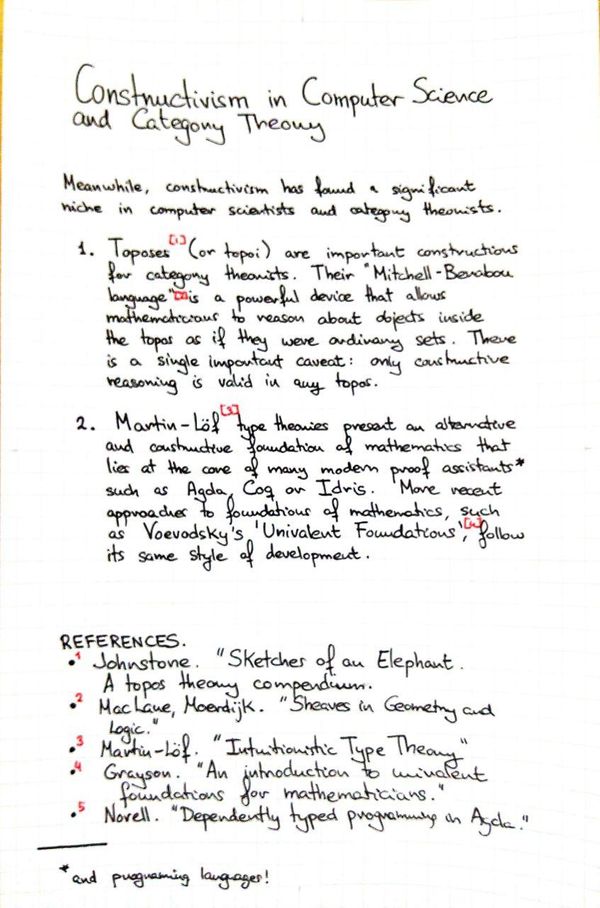 Constructivism in Computer Science
and Category Theory
Meanwhile, constructivism has found a significant
niche in computer scientists and category theorists.
1. Toposes[1] (or topoi) are important constructions
for category theorists. Their "Mitchell-Benabou
language"[2] is a powerful device that allows
mathematicians to reason about objects inside
the topos as if they were ordinary sets. There
is a single important caveat: only constructive
reasoning is valid in any topos.
2. Martin-Löf[3] type theories present an alternative
and constructive foundation of mathematics that
lies at the core of many modern proof assistants*
such as Agda, Coq or Idris. More recent
approaches to foundations of mathematics, such
as Voevodsky's 'Univalent Foundations',[4] follow
its same style of development.
REFERENCES.
•1 Johnstone. "Sketches of an Elephant.
A topos theory compendium.
•2 MacLane, Moerdijk. "Sheaves in Geometry and
Logic."
•3 Martin-Löf. "Intuitionistic Type Theory"
•4 Grayson. "An introduction to univalent
foundations for mathematicians."
•5 Norell. "Dependently typed programming in Agda."
*and programming languages!